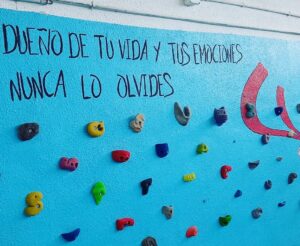 DUEÑO DE TU VIDA Y TUS EMOCIONES
NUNCA LO OLVIDES